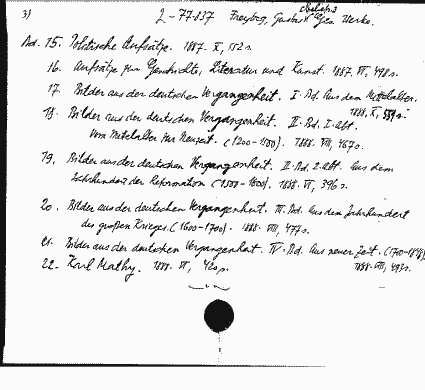 3) 2-77837 Freytag, Gustav: Gesammelte Werke.
Bd. 15. Politische Aufsätze. 1887. X, 552 s.
16. Aufsätze zur Geschichte, Literatur und Kunst. 1887. VI, 498 s.
17. Bilder aus der deutschen Vergangenheit. I. Bd. Aus dem Mittelalter.
1888, X, 559 s.
18. Bilder aus der deutschen Vergangenheit. II. Bd. I. abt.
Vom Mittelalter zur Neuzeit. (1200-1500). 1888. VIII, 467 s.
19. Bilder aus der deutschen Vergangenheit. II. Bd. 2. abt. Aus dem
Jahrhundert der Reformation (1500-1600). 1888. VI, 396 s.
20. Bilder aus der deutschen Vergangenheit. III. Bd. Aus dem Jahrhundert
des großen Krieges. (1600-1700). 1888. VIII, 477 s.
21. Bilder aus der deutschen Vergangenheit. IV. Bd. Aus neuer Zeit. (1700-1848)
1888. VIII, 497 s.
22. Karl Mathy. 1888. VI, 420 s.